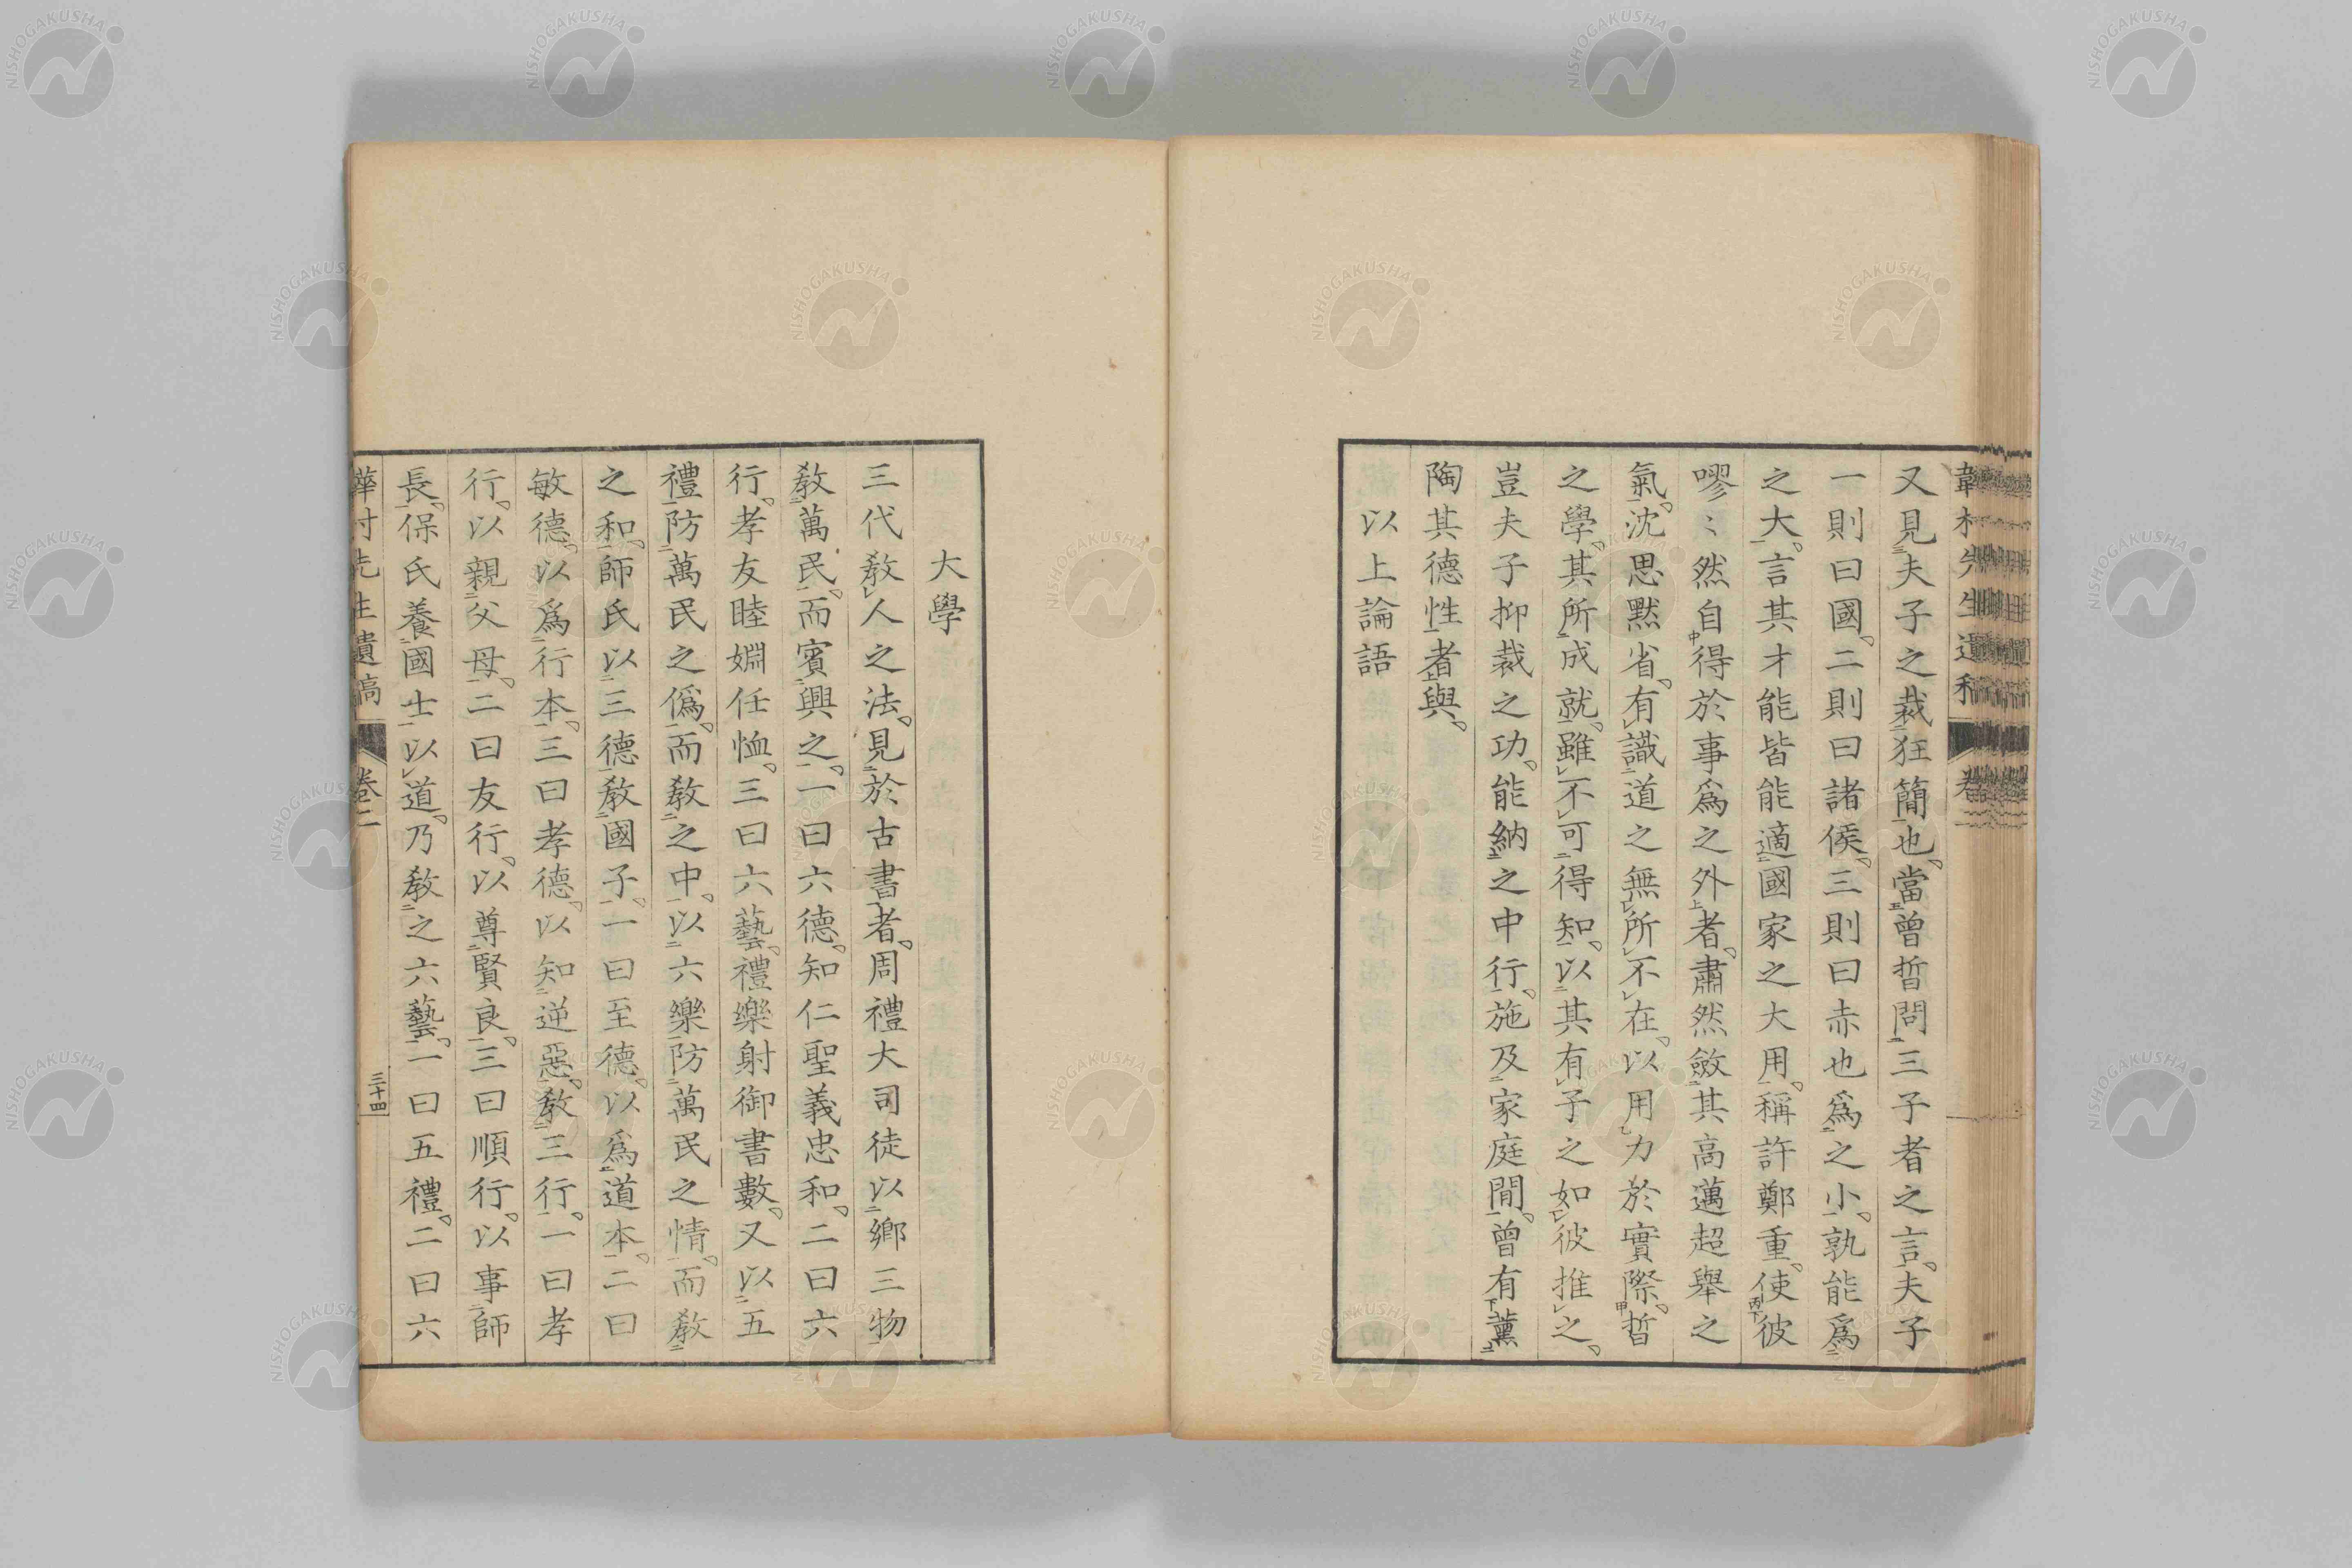 又見夫子之裁狂簡也。當曾晳問三子者之言。夫子
一則曰國。二則曰諸侯。三則曰赤也爲之小。孰能爲
之大。言其才能皆能適國家之大用。稱許鄭重。使彼
嘐〻然自得於事爲之外者。肅然斂其高邁超舉之
氣。沈思默省。有識道之無所不在。以用力於實際。晳
之學。其所成就。雖不可得知。以其有子之如彼推之。
豈夫子抑裁之功。能納之中行。施及家庭閒。曾有薰
陶其德性者與。
以上論語
大學
三代敎人之法。見於古書者。周禮大司徒以鄕三物
敎萬民。而賓興之。一曰六德。知仁聖義忠和。二曰六
行。孝友睦婣任恤。三曰六藝。禮樂射御書數。又以五
禮防萬民之僞。而敎之中。以六樂防萬民之情。而敎
之和。師氏以三德敎國子。一曰至德。以爲道本。二曰
敏德。以爲行本。三曰孝德。以知逆惡。敎三行。一曰孝
行。以親父母。二曰友行。以尊賢良。三曰順行。以事師
長。保氏養國士以道。乃敎之六藝。一曰五禮。二曰六
村先生遺稿 卷二 三十四
NISHOGAKUSHA